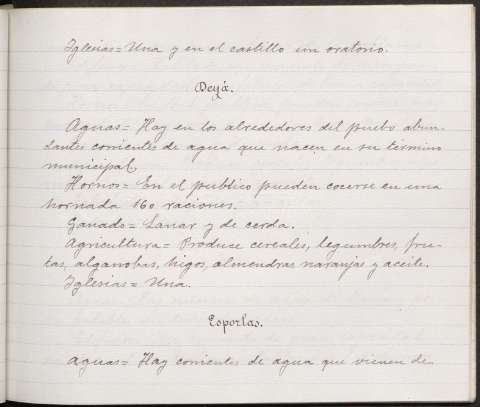 Iglesias = Una y en el castillo un oratorio.
Deyá.
Aguas = Hay en los alrededores del pueblo abun-
dantes corrientes de agua que nacen en su término
municipal.
Hornos = En el publico pueden cocerse en una
hornada 160 raciones.
Ganado = Lanar y de cerda.
Agricultura = Produce cereales, legumbres, fru-
tas, algarrobas, higos, almendras naranjas y aceite.
Iglesias = Una.
Esporlas.
Aguas = Hay corrientes de agua que vienen de